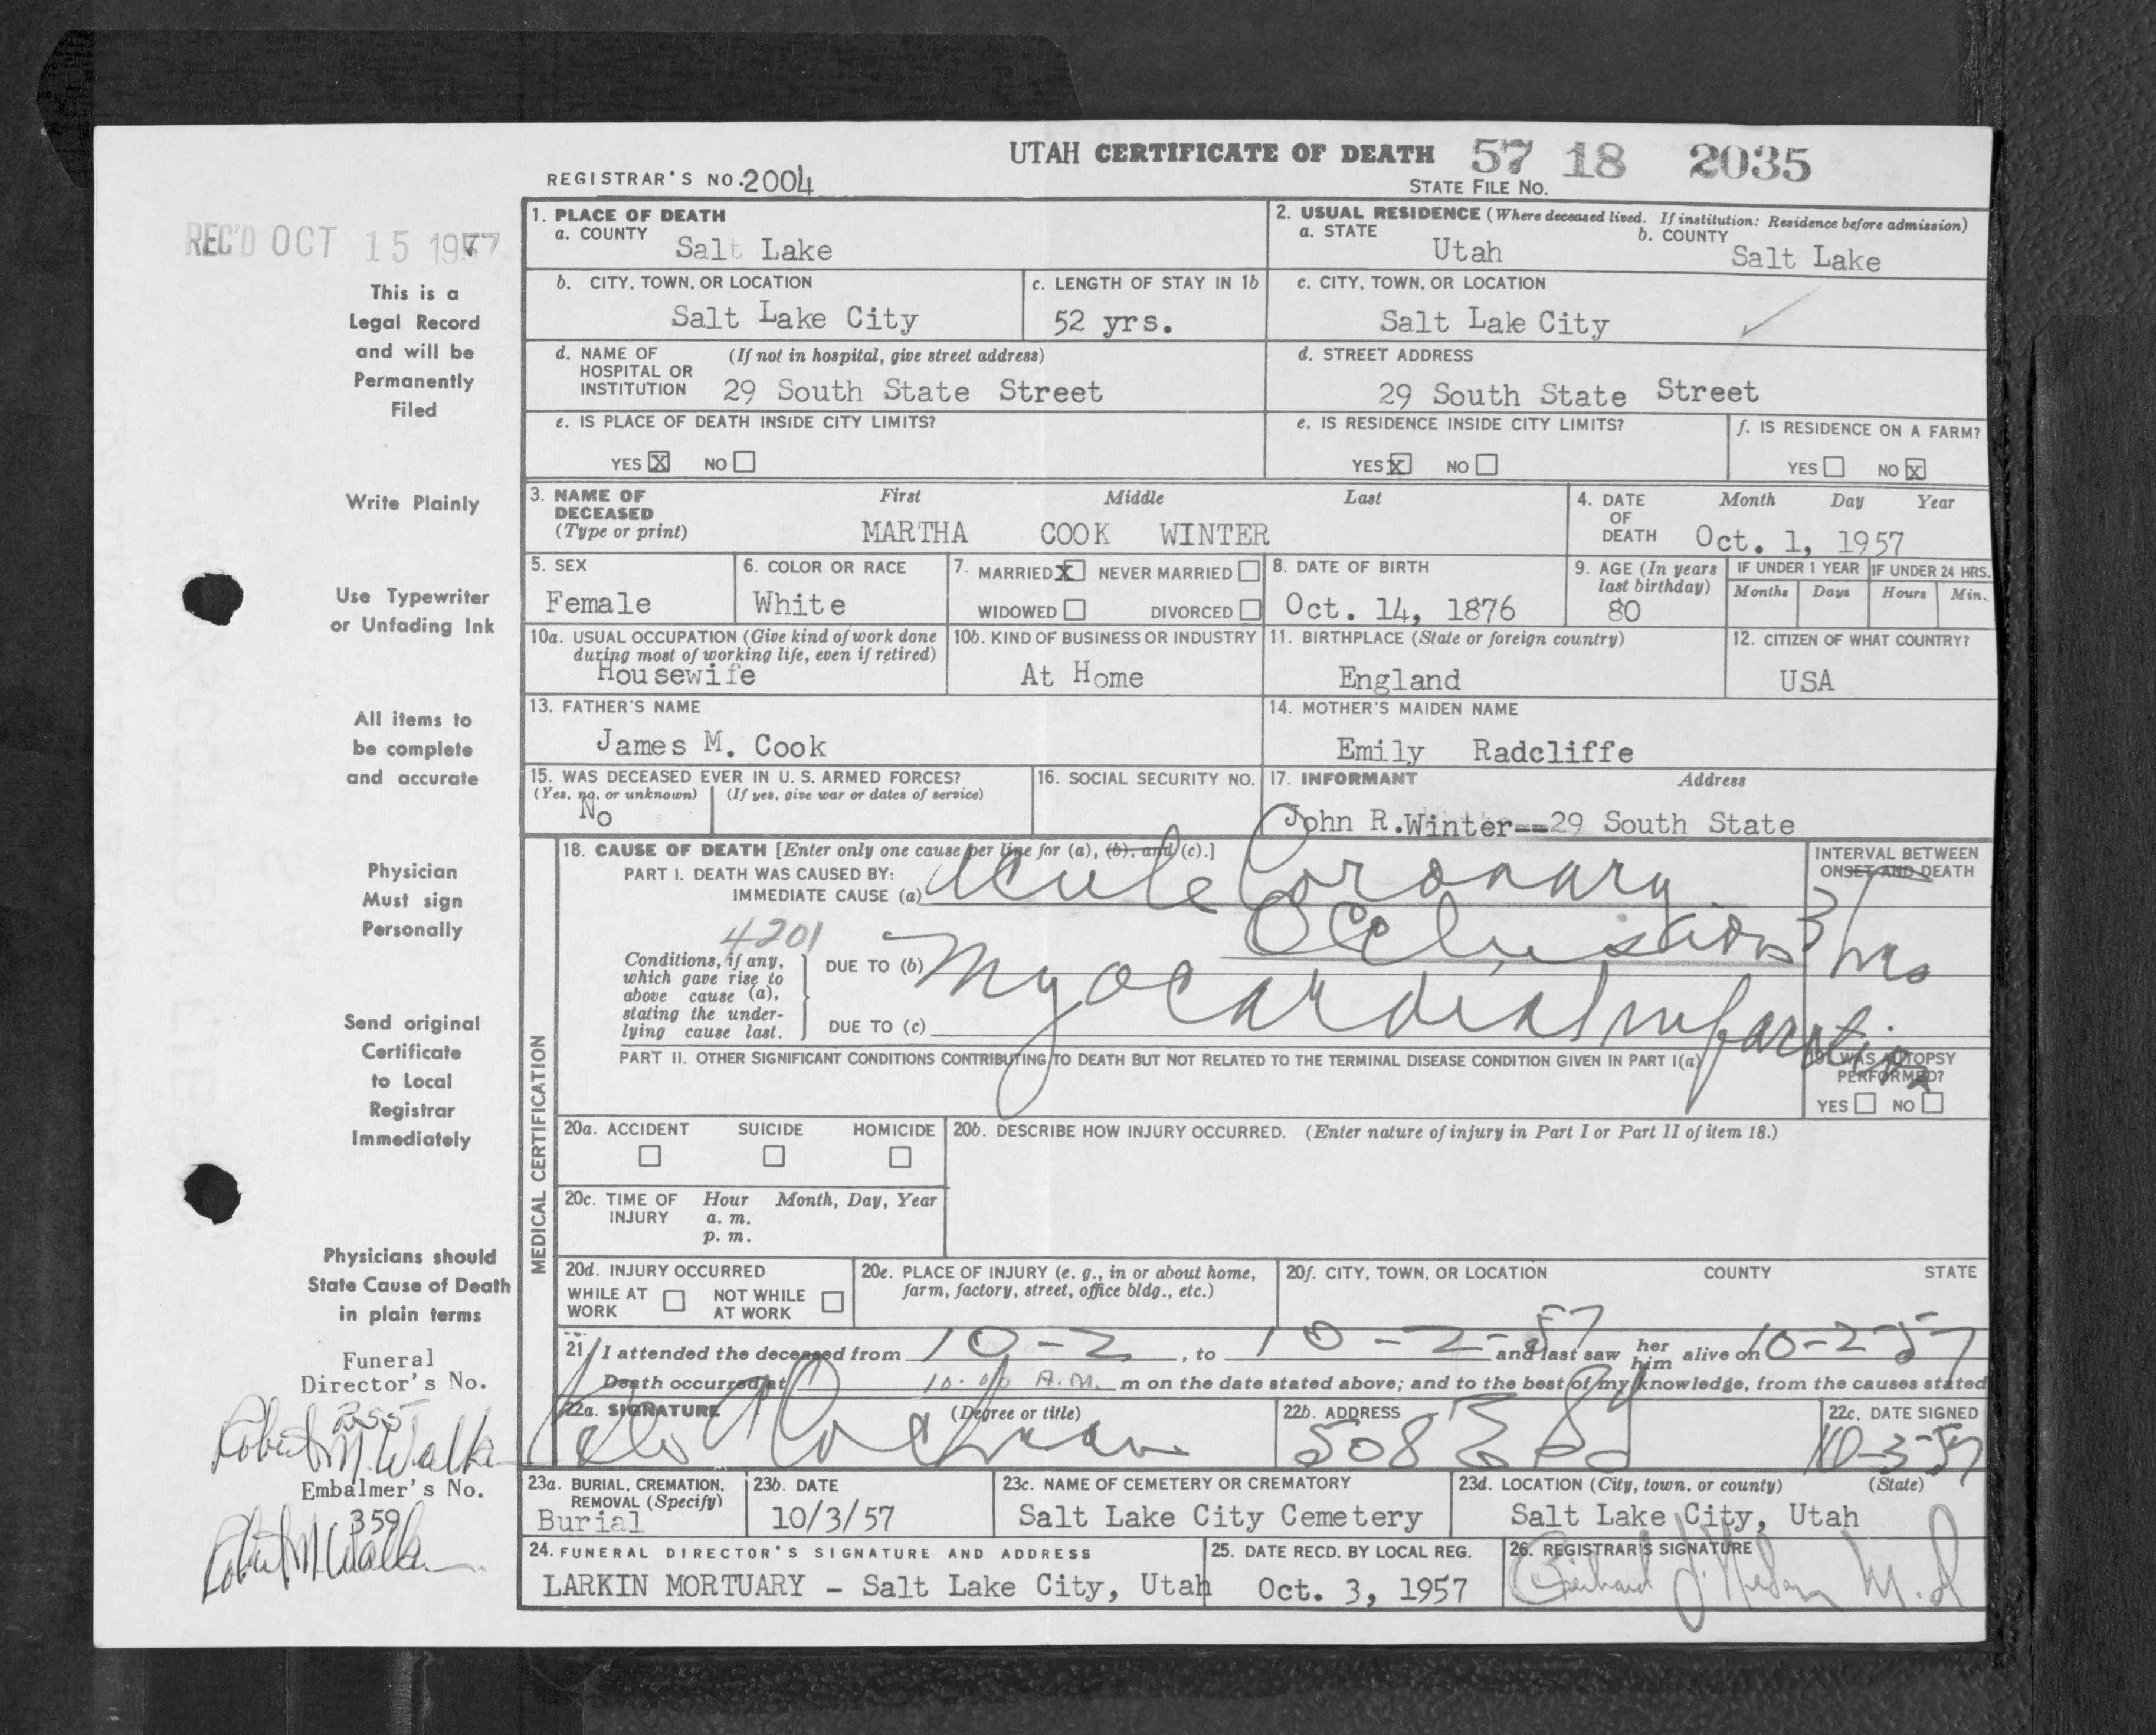 UTAH CERTIFICATE OF DEATH 57 18 2035
REGISTRAR'S NO. 2004
STATE FILE NO.
REC'D OCT 15 1957
This is a
Legal Record
and will be
Permanently
Filed
Write Plainly
Use Typewriter
or Unfading Ink
All items to
be complete
and accurate
Physician
Must sign
Personally
Send original
Certificate
to Local
Registrar
Immediately
Physicians should
State Cause of Death
in plain terms
Funeral
Director's No.
255
Robert M. Walker
Embalmer's No.
359
Robert M. Walker
1. PLACE OF DEATH
a. COUNTY Salt Lake
2. USUAL RESIDENCE (Where deceased lived. If institution: Residence before admission)
a. STATE Utah b. COUNTY Salt Lake
b. CITY, TOWN, OR LOCATION Salt Lake City
c. LENGTH OF STAY IN 1b 52 yrs.
c. CITY, TOWN, OR LOCATION Salt Lake City
d. NAME OF HOSPITAL OR INSTITUTION (If not in hospital, give street address) 29 South State Street
d. STREET ADDRESS 29 South State Street
e. IS PLACE OF DEATH INSIDE CITY LIMITS?
YES X NO
e. IS RESIDENCE INSIDE CITY LIMITS?
YES X NO
f. IS RESIDENCE ON A FARM?
YES NO X
3. NAME OF DECEASED (Type or print) First Middle Last
MARTHA COOK WINTER
4. DATE OF DEATH Month Day Year
Oct. 1, 1957
5. SEX Female
6. COLOR OR RACE White
7. MARRIED X NEVER MARRIED
WIDOWED DIVORCED
8. DATE OF BIRTH Oct. 14, 1876
9. AGE (In years last birthday) 80
IF UNDER 1 YEAR Months Days
IF UNDER 24 HRS. Hours Min.
10a. USUAL OCCUPATION (Give kind of work done during most of working life, even if retired)
Housewife
10b. KIND OF BUSINESS OR INDUSTRY At Home
11. BIRTHPLACE (State or foreign country) England
12. CITIZEN OF WHAT COUNTRY? USA
13. FATHER'S NAME
James M. Cook
14. MOTHER'S MAIDEN NAME
Emily Radcliffe
15. WAS DECEASED EVER IN U. S. ARMED FORCES?
(Yes, no, or unknown) (If yes, give war or dates of service)
No
16. SOCIAL SECURITY NO.
17. INFORMANT Address
John R. Winter--29 South State
MEDICAL CERTIFICATION
18. CAUSE OF DEATH [Enter only one cause per line for (a), (b), and (c).]
PART I. DEATH WAS CAUSED BY:
IMMEDIATE CAUSE (a) Acute Coronary Occlusion
INTERVAL BETWEEN ONSET AND DEATH
3 hrs
4201
Conditions, if any, which gave rise to above cause (a), stating the underlying cause last.
DUE TO (b) Myocardial Infarction
DUE TO (c)
PART II. OTHER SIGNIFICANT CONDITIONS CONTRIBUTING TO DEATH BUT NOT RELATED TO THE TERMINAL DISEASE CONDITION GIVEN IN PART I(a)
19. WAS AUTOPSY PERFORMED?
YES NO
20a. ACCIDENT SUICIDE HOMICIDE
20b. DESCRIBE HOW INJURY OCCURRED. (Enter nature of injury in Part I or Part II of item 18.)
20c. TIME OF INJURY Hour Month, Day, Year
a. m.
p. m.
20d. INJURY OCCURRED
WHILE AT WORK NOT WHILE AT WORK
20e. PLACE OF INJURY (e. g., in or about home, farm, factory, street, office bldg., etc.)
20f. CITY, TOWN, OR LOCATION COUNTY STATE
21. I attended the deceased from 10-2, to 10-2-57 and last saw her him alive on 10-2-57
Death occurred at 10:00 A.M. m on the date stated above; and to the best of my knowledge, from the causes stated
22a. SIGNATURE (Degree or title)
22b. ADDRESS 508
22c. DATE SIGNED 10-3-57
23a. BURIAL, CREMATION, REMOVAL (Specify) Burial
23b. DATE 10/3/57
23c. NAME OF CEMETERY OR CREMATORY Salt Lake City Cemetery
23d. LOCATION (City, town, or county) (State)
Salt Lake City, Utah
24. FUNERAL DIRECTOR'S SIGNATURE AND ADDRESS
LARKIN MORTUARY - Salt Lake City, Utah
25. DATE RECD. BY LOCAL REG.
Oct. 3, 1957
26. REGISTRAR'S SIGNATURE